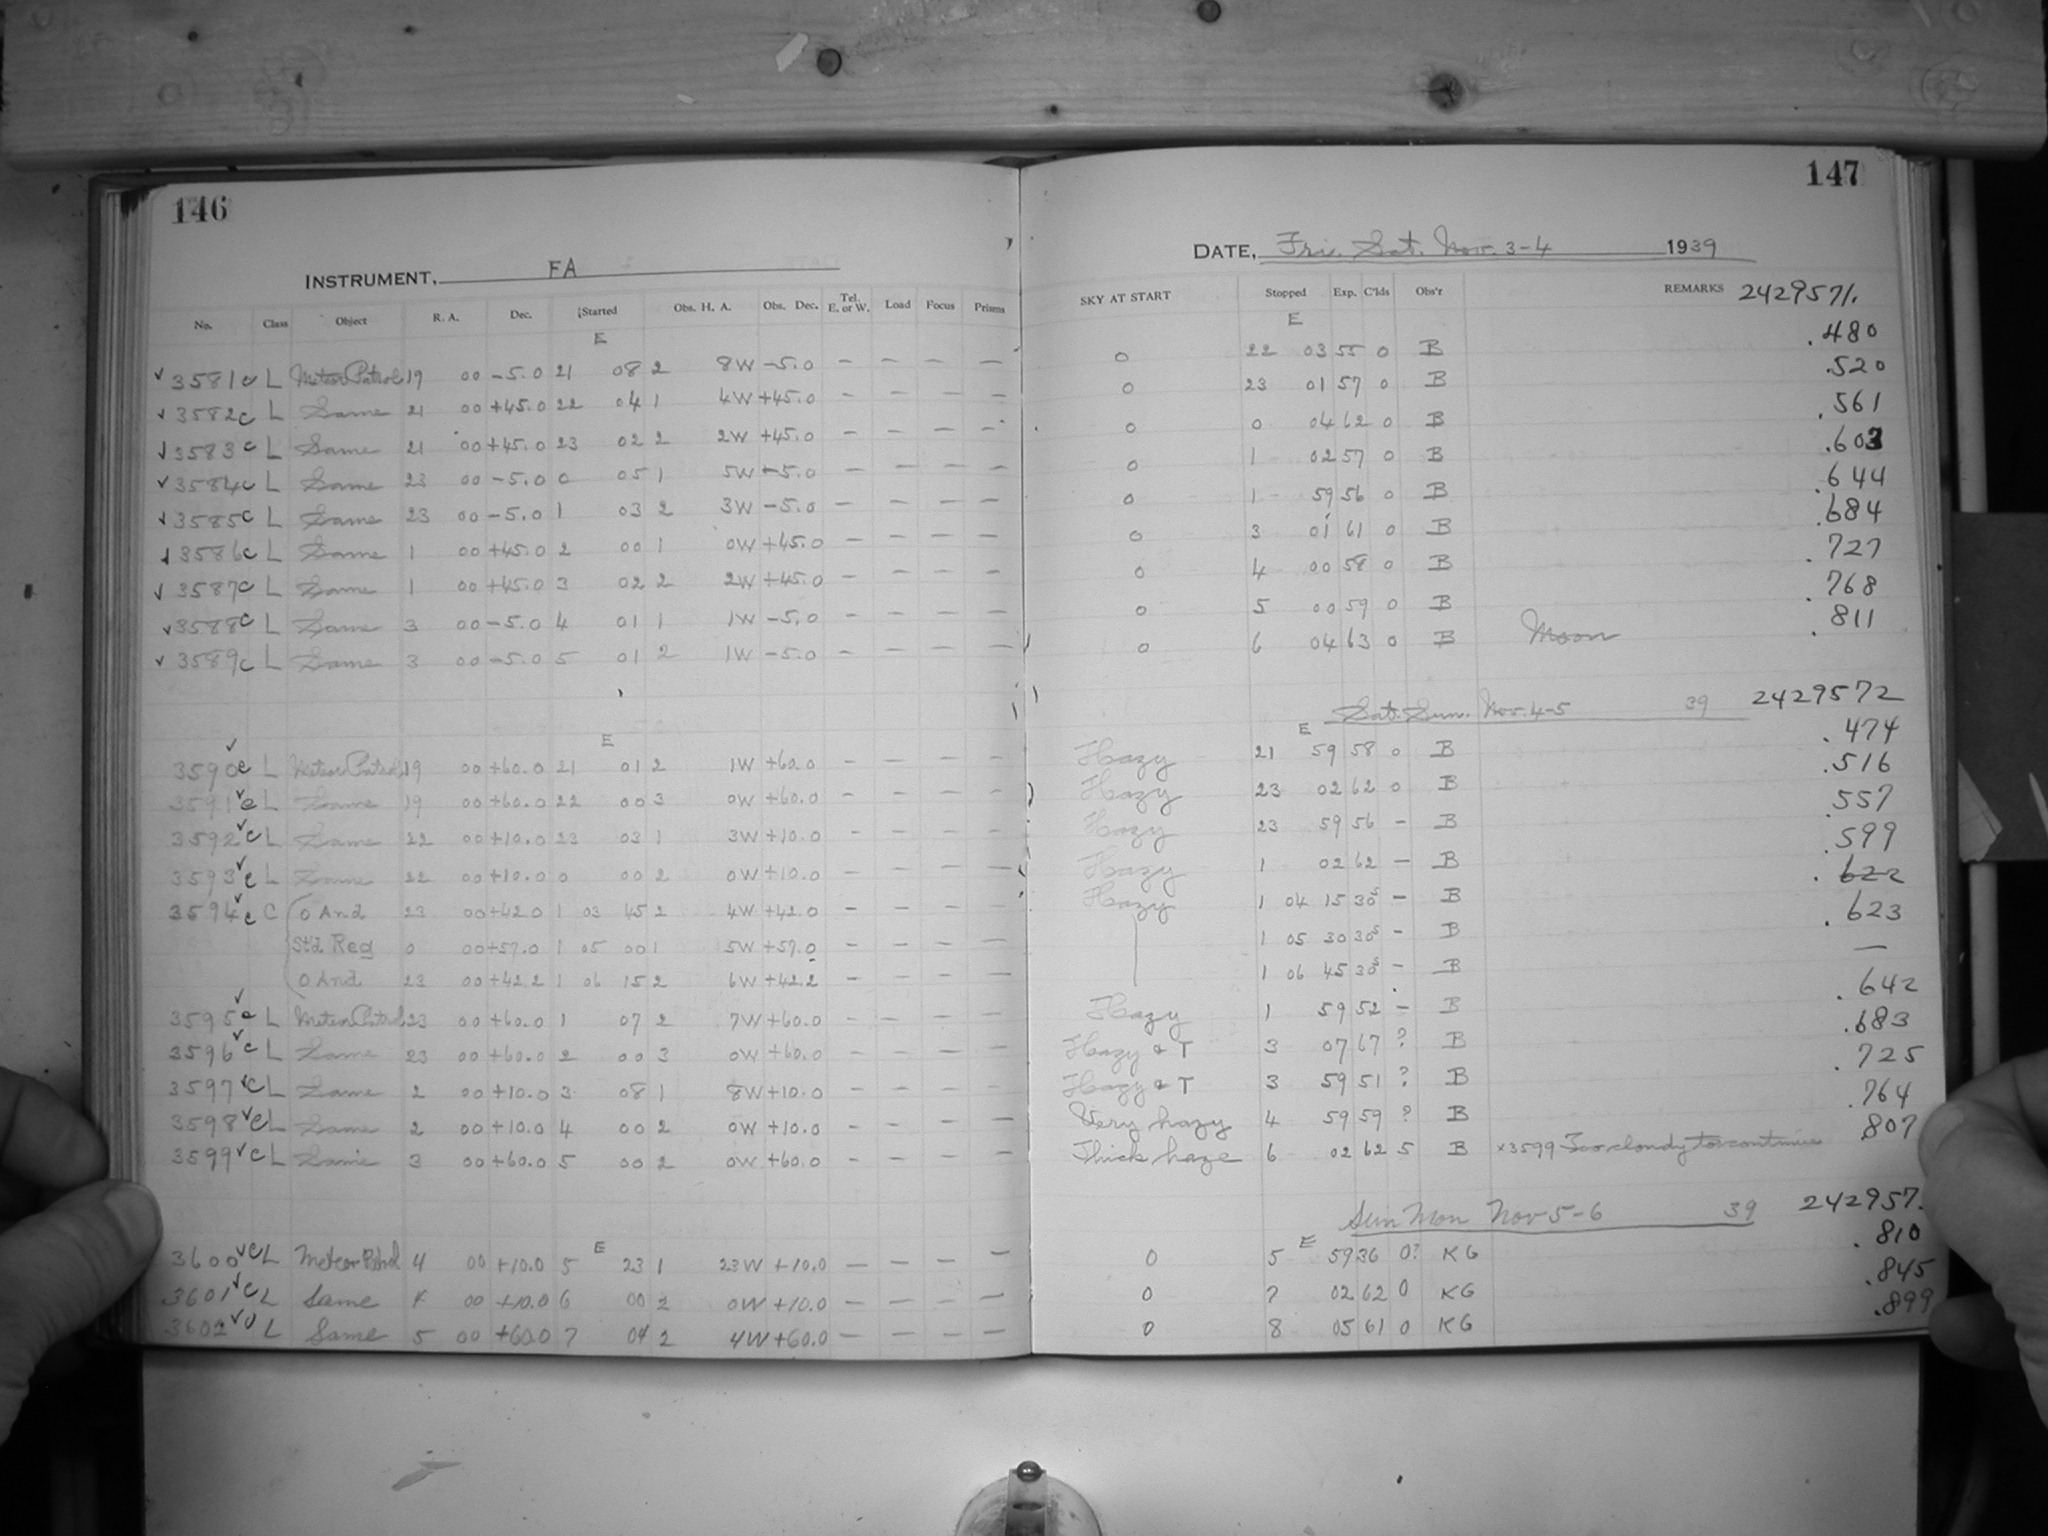 146
INSTRUMENT, FA
No. Class Object R. A. Dec. Started Obs. H. A. Obs. Dec. Tel. E. or W. Load Focus Prisms
E
✓ 3581c L Meteor Patrol 19 00 -5.0 21 08 2 8W -5.0 — — — —
✓ 3582c L Same 21 00 +45.0 22 04 1 4W +45.0 — — — —
✓ 3583c L Same 21 00 +45.0 23 02 2 2W +45.0 — — — —
✓ 3584c L Same 23 00 -5.0 0 05 1 5W -5.0 — — — —
✓ 3585c L Same 23 00 -5.0 1 03 2 3W -5.0 — — — —
✓ 3586c L Same 1 00 +45.0 2 00 1 0W +45.0 — — — —
✓ 3587c L Same 1 00 +45.0 3 02 2 2W +45.0 — — — —
✓ 3588c L Same 3 00 -5.0 4 01 1 1W -5.0 — — — —
✓ 3589c L Same 3 00 -5.0 5 01 2 1W -5.0 — — — —
E
3590✓c L Meteor Patrol 19 00 +60.0 21 01 2 1W +60.0 — — — —
3591✓c L Same 19 00 +60.0 22 00 3 0W +60.0 — — — —
3592✓c L Same 22 00 +10.0 23 03 1 3W +10.0 — — — —
3593✓c L Same 22 00 +10.0 0 00 2 0W +10.0 — — — —
3594✓c C (o And 23 00 +42.0 1 03 45 2 4W +42.0 — — — —
St'd Reg 0 00 +57.0 1 05 00 1 5W +57.0 — — — —
o And 23 00 +42.2 1 06 15 2 6W +42.2 — — — —
3595✓c L Meteor Patrol 23 00 +60.0 1 07 2 7W +60.0 — — — —
3596✓c L Same 23 00 +60.0 2 00 3 0W +60.0 — — — —
3597✓c L Same 2 00 +10.0 3 08 1 8W +10.0 — — — —
3598✓c L Same 2 00 +10.0 4 00 2 0W +10.0 — — — —
3599✓c L Same 3 00 +60.0 5 00 2 0W +60.0 — — — —
E
3600✓c L Meteor Patrol 4 00 +10.0 5 23 1 23W +10.0 — — — —
3601✓c L Same 4 00 +10.0 6 00 2 0W +10.0 — — — —
3602✓c L Same 5 00 +60.0 7 04 2 4W +60.0 — — — —
147
DATE, Fri. Sat. Nov. 3-4 1939
SKY AT START Stopped Exp. C'lds Obs'r REMARKS 2429571.
E
0 22 03 55 0 B .480
0 23 01 57 0 B .520
0 0 04 62 0 B .561
0 1 02 57 0 B .603
0 1 59 56 0 B .644
0 3 01 61 0 B .684
0 4 00 58 0 B .727
0 5 00 59 0 B .768
0 6 04 63 0 B Moon .811
Sat. Sun. Nov. 4-5 39 2429572
E
Hazy 21 59 58 0 B .474
Hazy 23 02 62 0 B .516
Hazy 23 59 56 — B .557
Hazy 1 02 62 — B .599
Hazy 1 04 15 30s — B .622
1 05 30 30s — B .623
1 06 45 30s — B —
Hazy 1 59 52 — B .642
Hazy & T 3 07 67 ? B .683
Hazy & T 3 59 51 ? B .725
Very hazy 4 59 59 ? B .764
Thick haze 6 02 62 5 B x3599 Too cloudy to continue .807
Sun Mon Nov 5-6 39 242957.
E
0 5 59 36 0? KG .810
0 7 02 62 0 KG .845
0 8 05 61 0 KG .899